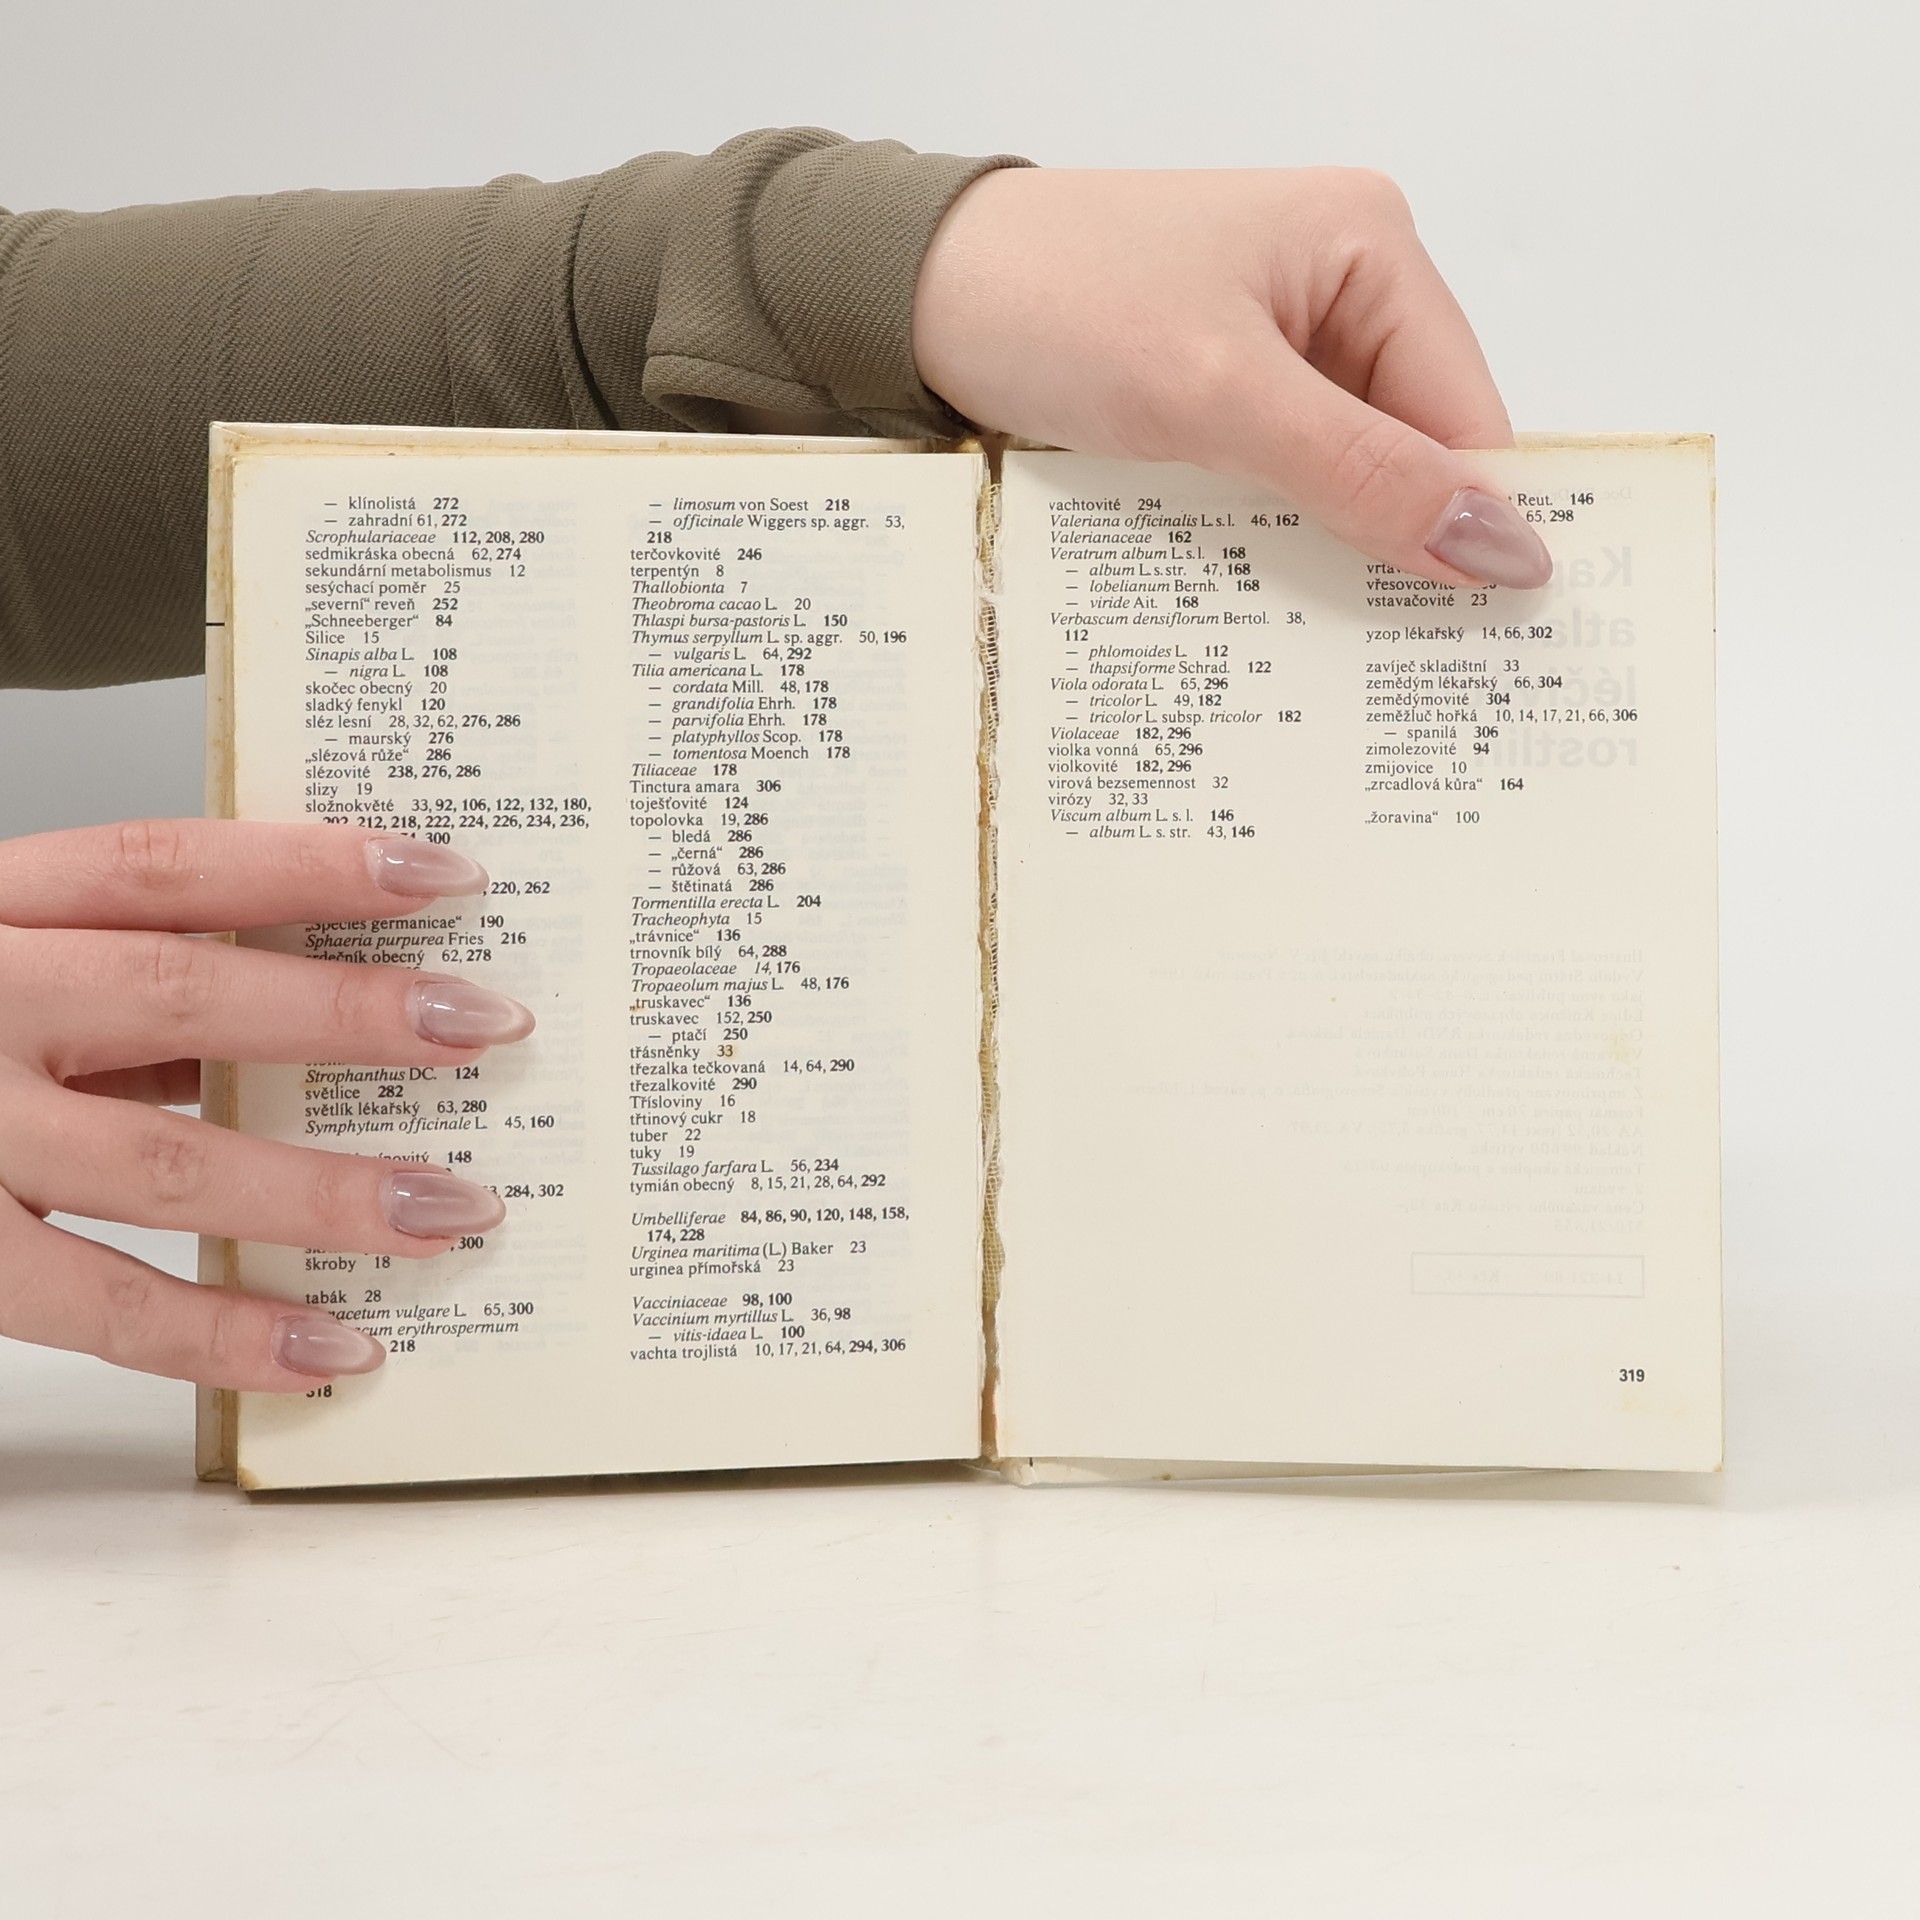 — klínolistá 272
— zahradní 61, 272
Scrophulariaceae 112, 208, 280
sedmikráska obecná 62, 274
sekundární metabolismus 12
sesýchací poměr 25
„severní“ reveň 252
„Schneeberger“ 84
Silice 15
Sinapis alba L. 108
— nigra L. 108
skočec obecný 20
sladký fenykl 120
sléz lesní 28, 32, 62, 276, 286
— maurský 276
„slézová růže“ 286
slézovité 238, 276, 286
slizy 19
složnokvěté 33, 92, 106, 122, 132, 180,
202, 212, 218, 222, 224, 226, 234, 236,
300
, 220, 262
„Species germanicae“ 190
Sphaeria purpurea Fries 216
srdečník obecný 62, 278
Strophanthus DC. 124
světlice 282
světlík lékařský 63, 280
Symphytum officinale L. 45, 160
148
284, 302
, 300
škroby 18
tabák 28
Tanacetum vulgare L. 65, 300
erythrospermum
218
318
— limosum von Soest 218
— officinale Wiggers sp. aggr. 53,
218
terčovkovité 246
terpentýn 8
Thallobionta 7
Theobroma cacao L. 20
Thlaspi bursa-pastoris L. 150
Thymus serpyllum L. sp. aggr. 50, 196
— vulgaris L. 64, 292
Tilia americana L. 178
— cordata Mill. 48, 178
— grandifolia Ehrh. 178
— parvifolia Ehrh. 178
— platyphyllos Scop. 178
— tomentosa Moench 178
Tiliaceae 178
Tinctura amara 306
toješťovité 124
topolovka 19, 286
— bledá 286
— „černá“ 286
— růžová 63, 286
— štětinatá 286
Tormentilla erecta L. 204
Tracheophyta 15
„trávnice“ 136
trnovník bílý 64, 288
Tropaeolaceae 14, 176
Tropaeolum majus L. 48, 176
„truskavec“ 136
truskavec 152, 250
— ptačí 250
třásněnky 33
třezalka tečkovaná 14, 64, 290
třezalkovité 290
Třísloviny 16
třtinový cukr 18
tuber 22
tuky 19
Tussilago farfara L. 56, 234
tymián obecný 8, 15, 21, 28, 64, 292
Umbelliferae 84, 86, 90, 120, 148, 158,
174, 228
Urginea maritima (L.) Baker 23
urginea přímořská 23
Vacciniaceae 98, 100
Vaccinium myrtillus L. 36, 98
— vitis-idaea L. 100
vachta trojlistá 10, 17, 21, 64, 294, 306
vachtovité 294
Valeriana officinalis L. s. l. 46, 162
Valerianaceae 162
Veratrum album L. s. l. 168
— album L. s. str. 47, 168
— lobelianum Bernh. 168
— viride Ait. 168
Verbascum densiflorum Bertol. 38,
112
— phlomoides L. 112
— thapsiforme Schrad. 122
Viola odorata L. 65, 296
— tricolor L. 49, 182
— tricolor L. subsp. tricolor 182
Violaceae 182, 296
violka vonná 65, 296
violkovité 182, 296
virová bezsemennost 32
virózy 32, 33
Viscum album L. s. l. 146
— album L. s. str. 43, 146
Reut. 146
65, 298
vřesovcovité
vstavačovité 23
yzop lékařský 14, 66, 302
zavíječ skladištní 33
zemědým lékařský 66, 304
zemědýmovité 304
zeměžluč hořká 10, 14, 17, 21, 66, 306
— spanilá 306
zimolezovité 94
zmijovice 10
„zrcadlová kůra“ 164
„žoravina“ 100
319